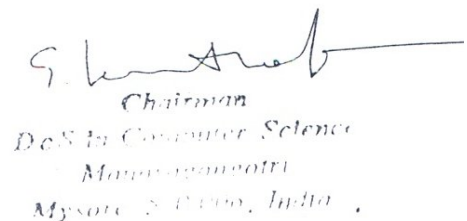 G.
Chairman
DoS in Computer Science
Manasagangotri
Mysore India